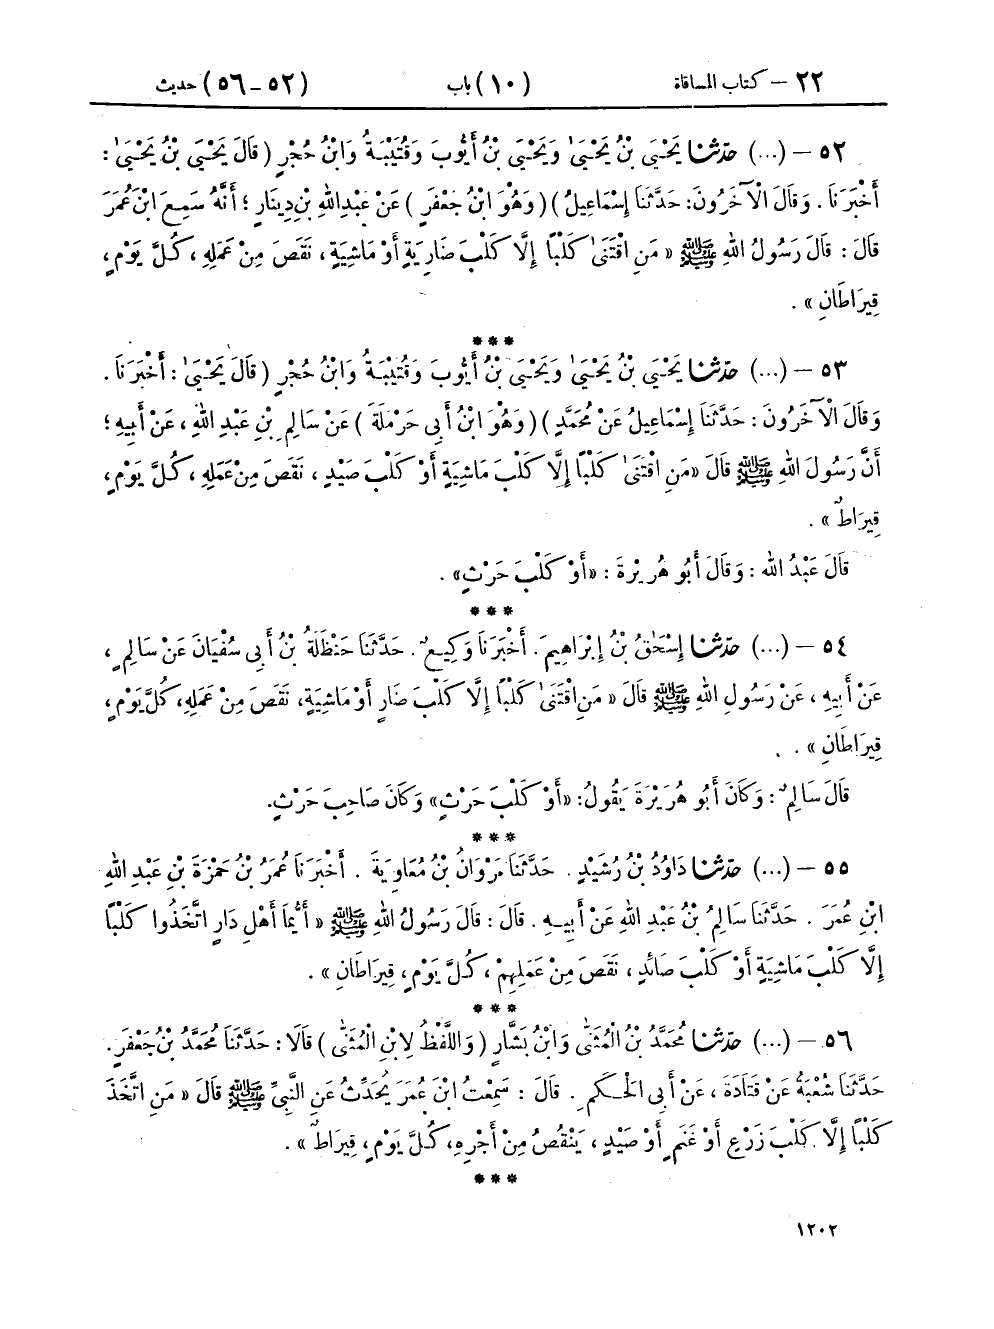 ٢٢ – كتاب المساقاة (١٠) باب (٥٢ – ٥٦) حديث
٥٢ – (...) حَدَّثَنَا يَحْيَىٰ بْنُ يَحْيَىٰ وَيَحْيَىٰ بْنُ أَيُّوبَ وَقُتَيْبَةُ وَابْنُ حُجْرٍ (قَالَ يَحْيَىٰ بْنُ يَحْيَىٰ :
أَخْبَرَنَا . وَقَالَ الْآخَرُونَ: حَدَّثَنَا إِسْمَاعِيلُ) (وَهُوَ ابْنُ جَعْفَرٍ) عَنْ عَبْدِ اللهِ بْنِ دِينَارٍ ؛ أَنَّهُ سَمِعَ ابْنَ عُمَرَ
قَالَ : قَالَ رَسُولُ اللهِ ﷺ « مَنِ اقْتَنَىٰ كَلْبًا إِلَّا كَلْبَ ضَارِيَةٍ أَوْ مَاشِيَةٍ ، نَقَصَ مِنْ عَمَلِهِ ، كُلَّ يَوْمٍ ،
قِيرَاطَانِ » .
***
٥٣ – (...) حَدَّثَنَا يَحْيَىٰ بْنُ يَحْيَىٰ وَيَحْيَىٰ بْنُ أَيُّوبَ وَقُتَيْبَةُ وَابْنُ حُجْرٍ (قَالَ يَحْيَىٰ : أَخْبَرَنَا .
وَقَالَ الْآخَرُونَ : حَدَّثَنَا إِسْمَاعِيلُ عَنْ مُحَمَّدٍ) (وَهُوَ ابْنُ أَبِي حَرْمَلَةَ) عَنْ سَالِمِ بْنِ عَبْدِ اللهِ ، عَنْ أَبِيهِ ؛
أَنَّ رَسُولَ اللهِ ﷺ قَالَ «مَنِ اقْتَنَىٰ كَلْبًا إِلَّا كَلْبَ مَاشِيَةٍ أَوْ كَلْبَ صَيْدٍ ، نَقَصَ مِنْ عَمَلِهِ ، كُلَّ يَوْمٍ ،
قِيرَاطٌ » .
قَالَ عَبْدُ اللهِ : وَقَالَ أَبُو هُرَيْرَةَ : «أَوْ كَلْبَ حَرْثٍ» .
***
٥٤ – (...) حَدَّثَنَا إِسْحَٰقُ بْنُ إِبْرَاهِيمَ . أَخْبَرَنَا وَكِيعٌ . حَدَّثَنَا حَنْظَلَةُ بْنُ أَبِي سُفْيَانَ عَنْ سَالِمٍ ،
عَنْ أَبِيهِ ، عَنْ رَسُولِ اللهِ ﷺ قَالَ « مَنِ اقْتَنَىٰ كَلْبًا إِلَّا كَلْبَ ضَارٍ أَوْ مَاشِيَةٍ ، نَقَصَ مِنْ عَمَلِهِ، كُلَّ يَوْمٍ ،
قِيرَاطَانِ » .
قَالَ سَالِمٌ : وَكَانَ أَبُو هُرَيْرَةَ يَقُولُ: «أَوْ كَلْبَ حَرْثٍ» وَكَانَ صَاحِبَ حَرْثٍ.
***
٥٥ – (...) حَدَّثَنَا دَاوُدُ بْنُ رُشَيْدٍ . حَدَّثَنَا مَرْوَانُ بْنُ مُعَاوِيَةَ . أَخْبَرَنَا عُمَرُ بْنُ حَمْزَةَ بْنِ عَبْدِ اللهِ
ابْنِ عُمَرَ . حَدَّثَنَا سَالِمُ بْنُ عَبْدِ اللهِ عَنْ أَبِيهِ . قَالَ : قَالَ رَسُولُ اللهِ ﷺ « أَيُّمَا أَهْلِ دَارٍ اتَّخَذُوا كَلْبًا
إِلَّا كَلْبَ مَاشِيَةٍ أَوْ كَلْبَ صَائِدٍ ، نَقَصَ مِنْ عَمَلِهِمْ ، كُلَّ يَوْمٍ ، قِيرَاطَانِ » .
***
٥٦ – (...) حَدَّثَنَا مُحَمَّدُ بْنُ الْمُثَنَّىٰ وَابْنُ بَشَّارٍ (وَاللَّفْظُ لِابْنِ الْمُثَنَّىٰ) قَالَا : حَدَّثَنَا مُحَمَّدُ بْنُ جَعْفَرٍ .
حَدَّثَنَا شُعْبَةُ عَنْ قَتَادَةَ ، عَنْ أَبِي الْحَكَمِ . قَالَ : سَمِعْتُ ابْنَ عُمَرَ يُحَدِّثُ عَنِ النَّبِيِّ ﷺ قَالَ « مَنِ اتَّخَذَ
كَلْبًا إِلَّا كَلْبَ زَرْعٍ أَوْ غَنَمٍ أَوْ صَيْدٍ ، يَنْقُصُ مِنْ أَجْرِهِ، كُلَّ يَوْمٍ ، قِيرَاطٌ » .
***
١٢٠٢